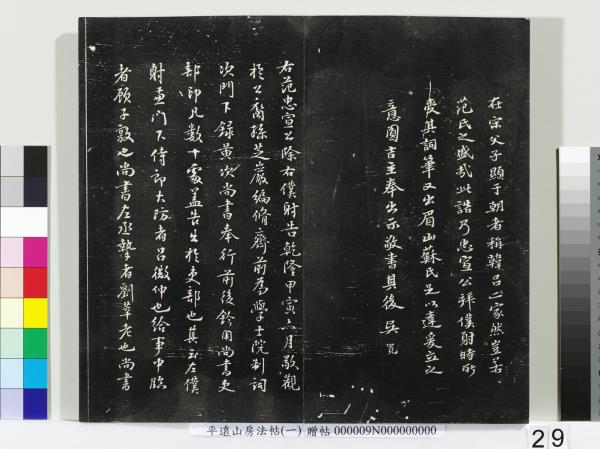 在宗父子顯于朝者稱韓呂二家然豈若
范氏之盛哉此誥乃忠宣公拜僕射時所
受其詞筆又出眉山蘇氏足以達爰立之
意園吉主奉出示敬書其後 吳寬
右范忠宣公除右僕射告乾隆甲寅六月敬觀
於公裔孫芝巖編脩齋前為學士院制詞
次門下録黃次尚書奉行前後鈐用尚書吏
部印凡數十處蓋告出於吏部也其云左僕
射兼門下侍郎大防者呂微仲也給事中臨
者顧子敦也尚書左丞摯者劉莘老也尚書
平遠山房法帖(一) 贈帖 000009N000000000
29